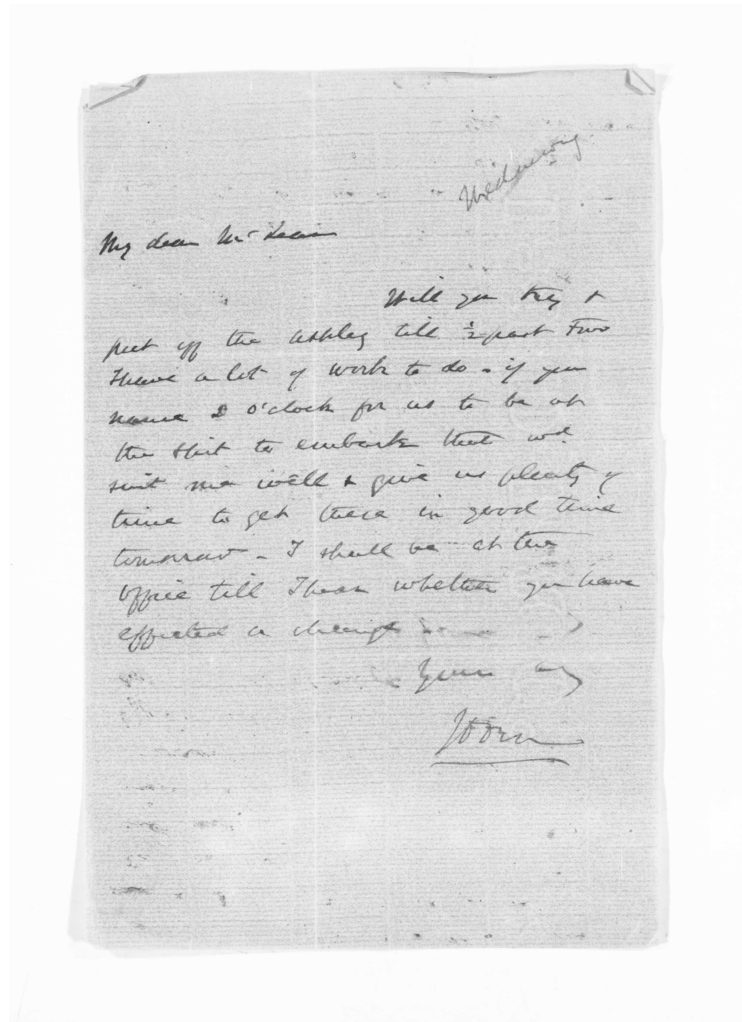 Wednesday
My dear McLean
Will you try &
put off the Ashley till ½ past Two
I have a lot of work to do - if you
name 2 o'clock for us to be at
the spit to embark that wd.
suit me well & give us plenty of
time to get there in good time
tomorrow - I shall be at the
office till I hear whether you have
effected a change
Yours